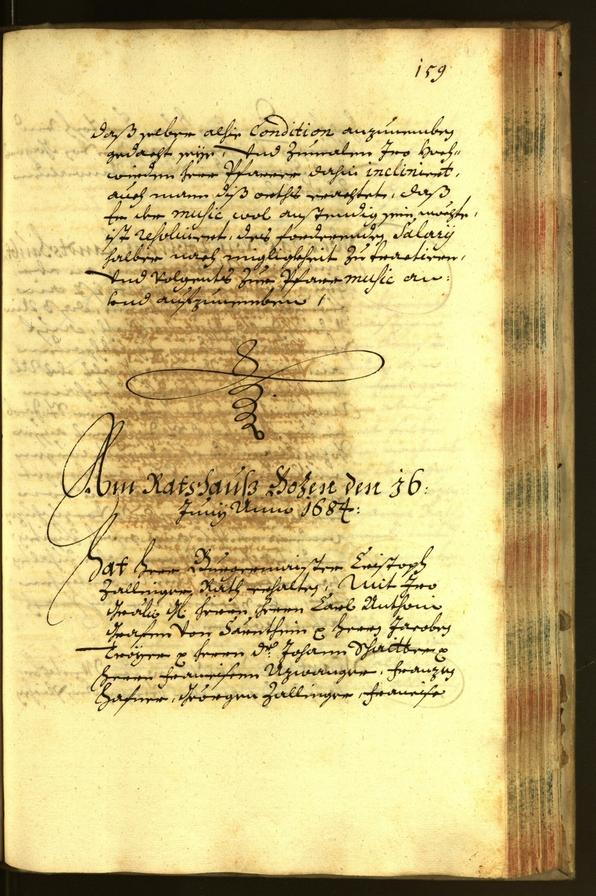 159
daß selber alhie Condition anzunemben
gedacht seye, Und zumalen Iro Hoch-
wierden Herr Pfarrer dahin inclinieret,
auch mann diß orths erachtet, daß
Er der music wol anstendig sein möchte,
ist resolvieret, des forderenden Salarÿ
halber nach migligkheit zu tractieren,
Und volgents zur Pfarr music an-
lend aufzunemben /
Am Rathauß Bozen den 16:
Junÿ Anno 1684:
Hat Herr Burgermaister Cristoph
Zallinger Rath gehalten, Mit Iro
Herrn Herrn Carl Anthoni
Grafen von Sarnthein p Herrn Jacoben
Troÿer p Herrn Dr. Johann p
Herrn Francisen, Franzen
Hafner, Georgen Zallinger, Francisc